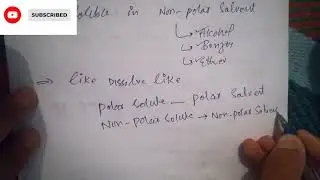 SUBSCRIBED
in Non-polar Solvent
Alcohol
Ether
⇒ like Dissolve like
polar solute — polar Solvent
Non-polar solute → Non-polar Solven